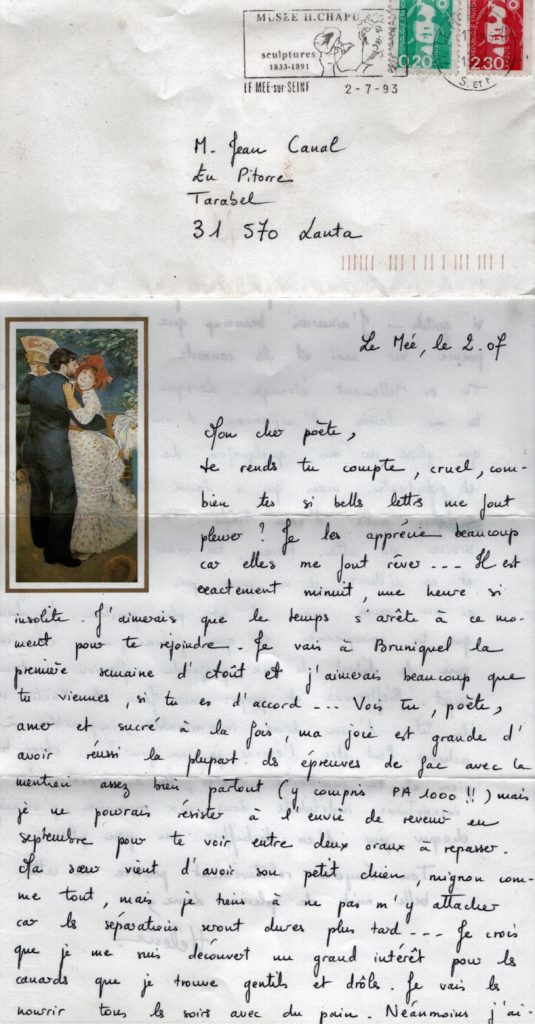 MUSEE H.CHAPU
sculptures
1833-1891
LE MEE-sur-SEINE
2-7-93
0,20
2,30
M. Jean Canal
En Pitorre
Tarabel
31 570 Lanta
Le Méé, le 2.07
Mon cher poète,
te rends tu compte, cruel, com-
bien tes si bells lettrs me font
pleurer ? Je les apprécie beaucoup
car elles me font rêver --- Il est
exactement minuit, une heure si
insolite. J'aimerais que le temps s'arrête à ce mo-
ment pour te rejoindre. Je vais à Bruniquel la
première semaine d'Août et j'aimerais beaucoup que
tu viennes, si tu es d'accord --- Vois tu, poète,
amer et sucré à la fois, ma joie est grande d'
avoir réussi la plupart ds épreuves de fac avec la
mention assez bien partout (y compris PA 1000 !!) mais
je ne pourrais résister à l'envie de revenir en
septembre pour te voir entre deux oraux à repasser.
Ma sœur vient d'avoir son petit chien mignon com-
me tout, mais je tiens à ne pas m'y attacher
car ls séparations seront dures plus tard --- Je crois
que je me suis découvert un grand intérêt pour ls
canards que je trouve gentils et drôls. Je vais ls
nourrir tous ls soirs avec du pain. Néanmoins j'ai-